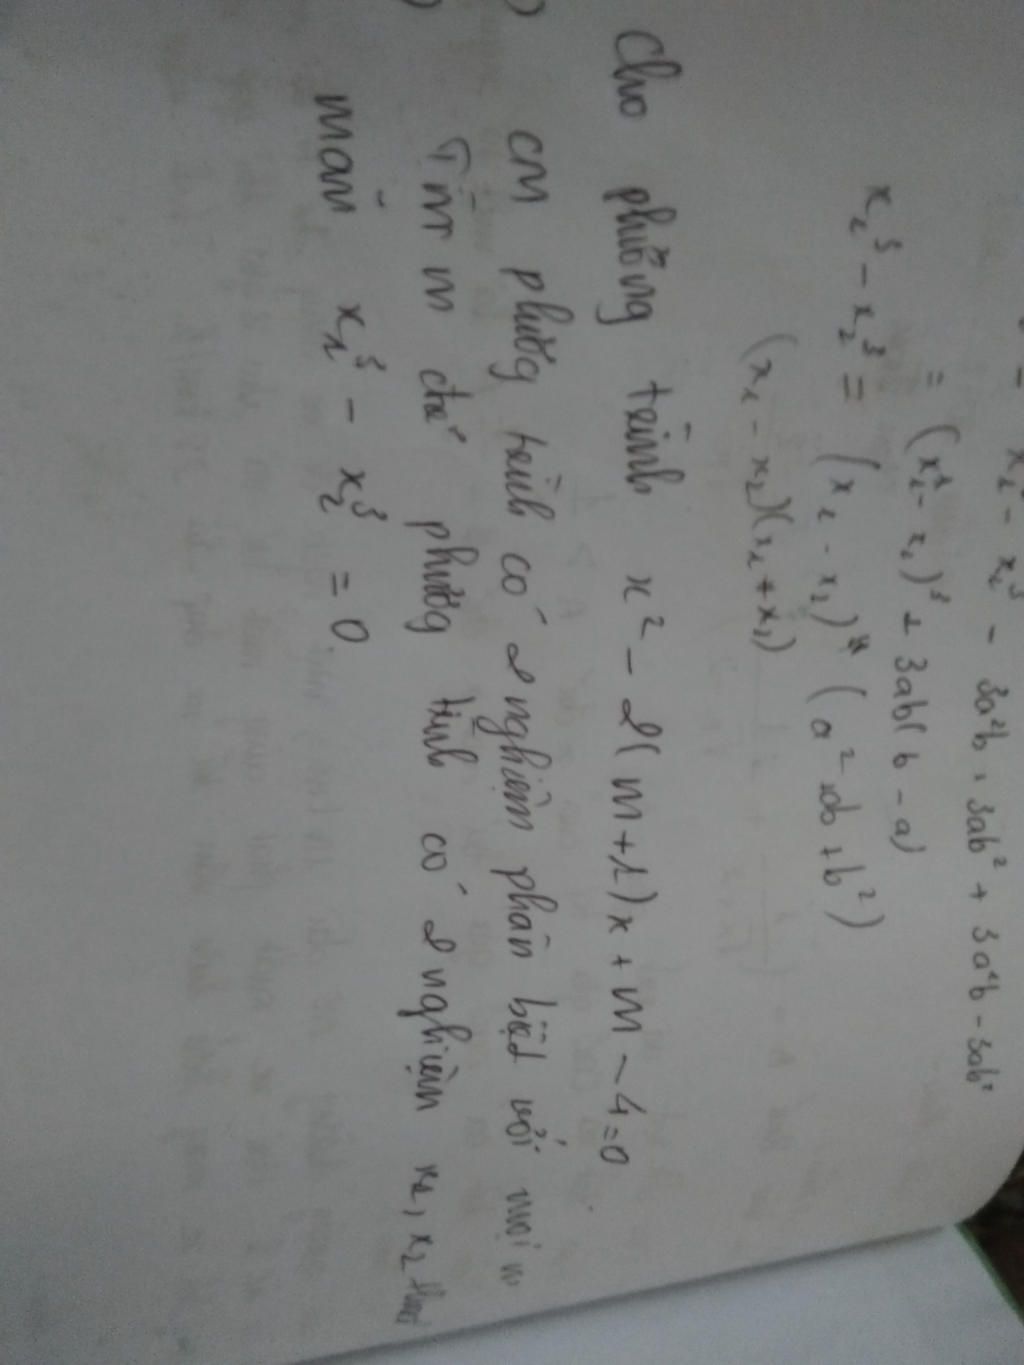 = x₁³ - x₂³ - 3a²b + 3ab² + 3a²b - 3ab²
= (x₁ - x₂)³ + 3ab(b - a)
x₁³ - x₂³ = (x₁ - x₂) (a² ab + b²)
(x₁ - x₂)(x₁ + x₂)
Cho phường trình x² - 2(m+1)x + m - 4 = 0
) CM phường trình có 2 nghiệm phân biệt với mọi m
) Tìm m để phường trình có 2 nghiệm x₁, x₂ thoả
mãn x₁³ - x₂³ = 0